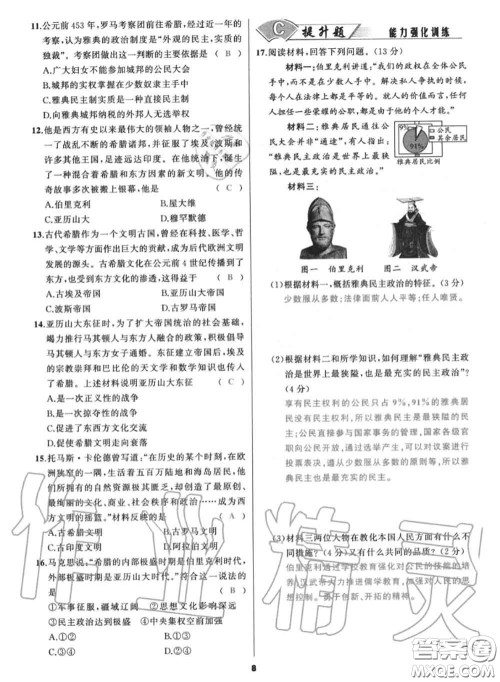 11.公元前 453 年,罗马考察团前往希腊,经过近一年的
考察,认为雅典的政治制度是“外观的民主,实质的
独裁”。考察团做出这一判断的主要依据是 ( B )
A.广大妇女不能参加城邦的公民大会
B.城邦的实权掌握在少数奴隶主手中
C.雅典民主制实质是一种直接民主制
D.雅典境内的外邦人无选举权
12.他是西方有史以来最伟大的领袖人物之一,曾经统
一了战乱不断的希腊诸邦,并征服了埃及、波斯和
许多其他王国,足迹远达印度。在他统治下,诞生
了一种混合着希腊和东方因素的新文明。他的传
奇故事多次被搬上银幕,他是 ( C )
A.伯里克利 B.屋大维
C.亚历山大 D.穆罕默德
13.古代希腊作为一个文明古国,曾经在科技、医学、哲
学、文学等方面作出巨大的贡献,成为后代欧洲文明
发展的源头。古希腊文化在公元前 4 世纪传播到了
东方,也受到东方文化的渗透,这得益于 ( B )
A.古埃及帝国 B.亚历山大帝国
C.波斯帝国 D.古罗马帝国
14.亚历山大东征时,为了扩大帝国统治的社会基础,
竭力推行马其顿人与东方人融合的政策,积极鼓励
马其顿人与东方女子通婚。东征建立帝国后,埃及
的宗教崇拜和巴比伦的天文学和数学知识也传入
了希腊。上述材料说明亚历山大东征 ( C )
A.是一次正义性的战争
B.是一次掠夺性的战争
C.促进了东西方文化交流
D.促进了东方文化发展
15.托马斯·卡伦德说道:“在历史的某个时刻,在欧
洲狭窄的一隅,生活着五百万陆地和岛屿居民,他
们所拥有的自然资源极其有限,但却创造了最原创、
最绚丽的文化,商业、社会秩序和政治……成为西
方文明的摇篮。”材料反映的是 ( A )
A.古希腊文明 B.古罗马文明
C.古印度文明 D.阿拉伯文明
16.马克思说:“希腊的内部极盛时期是伯里克利时代,
外部极盛时期是亚历山大时代。”符合这一说法的
是 ( B )
①军事征服,疆域辽阔 ②思想文化影响深远
③民主政治达到极盛 ④中央集权空前加强
A.①② B.①③
C.②③ D.③④
C 提升题 能力强化训练
17.阅读材料,回答下列问题。(13 分)
材料一:伯里克利讲道:“我们的政权在全体公民
手中,而不是在少数人手中。解决私人争执的时候,
每个人在法律上都是平等的。就人的价值而言,任何
人担任一些荣耀的公职,都是由于他的个人才能。”
材料二:雅典居民通往公
民大会并非“通途”,有人指出:
“雅典民主政治是世界上最狭
隘,也是最充实的民主政治。”
9%
91%
公民
其余居民
雅典居民比例
材料三:
图一 伯里克利 图二 汉武帝
(1)根据材料一,概括雅典民主政治的特征。(3 分)
少数服从多数;法律面前人人平等;任人唯贤。
(2)根据材料二和所学知识,如何理解“雅典民主政
治是世界上最狭隘,也是最充实的民主政治”?
(4 分)
享有民主权利的公民只占 9%,91%的雅典居
民没有民主权利,所以雅典民主是最狭隘的民
主;公民直接参与国家事务的管理,国家各级官
职都向公民开放,通过选举产生,可以对政事进行
投票表决,遵从少数服从多数的原则等,所以其
又是最充实的民主政治。
(3)材料三两位人物在教化本国人民方面有什么不
同措施?(4 分)又有什么共同的品质?(2 分)
伯里克利通过学校教育强化对公民的技能的培
养;汉武帝大力推进儒学教育,加强对人民的思
想控制。勇于创新、开拓创新。
8
作业精灵